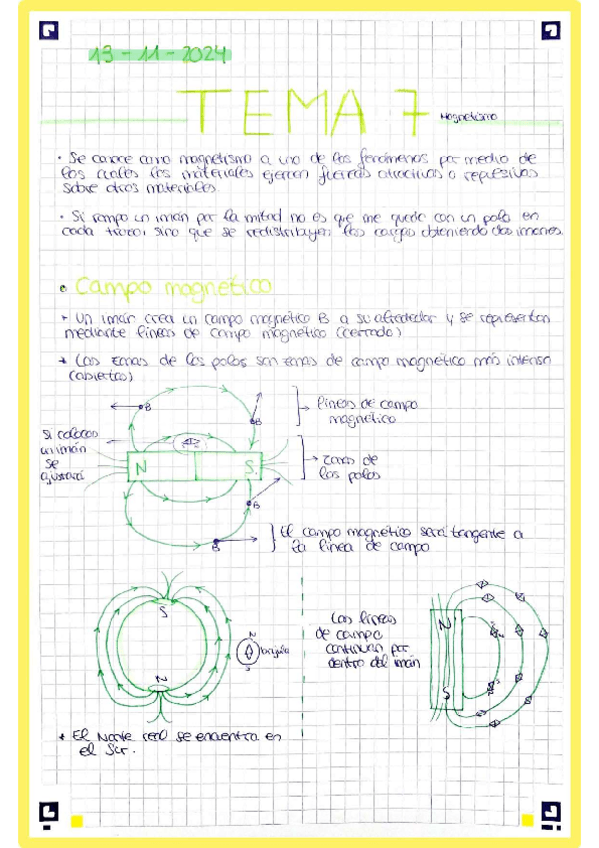 13-11-2024
TEMA 7 Magnetismo
· Se conoce como magnetismo a uno de los fenómenos por medio de
los cuales los materiales ejercen fuerzas atractivas o repulsivas
sobre otros materiales.
· Si rompo un imán por la mitad no es que me quede con un polo en
cada trozo, sino que se redistribuyen las cargas obteniendo dos imanes.
• Campo magnético
* Un imán crea un campo magnético B a su alrededor y se representan
mediante líneas de campo magnético (cerrado)
* Las zonas de los polos son zonas de campo magnético más intenso
(abiertos)
B
B
líneas de campo
magnético
Si colocas
un imán
se
ajustará
N
S
zonas de
los polos
B
B
El campo magnético será tangente a
la línea de campo
S
N
N
S
brújula
Las líneas
de campo
continúan por
dentro del imán
N
S
* El Norte real se encuentra en
el Sur.